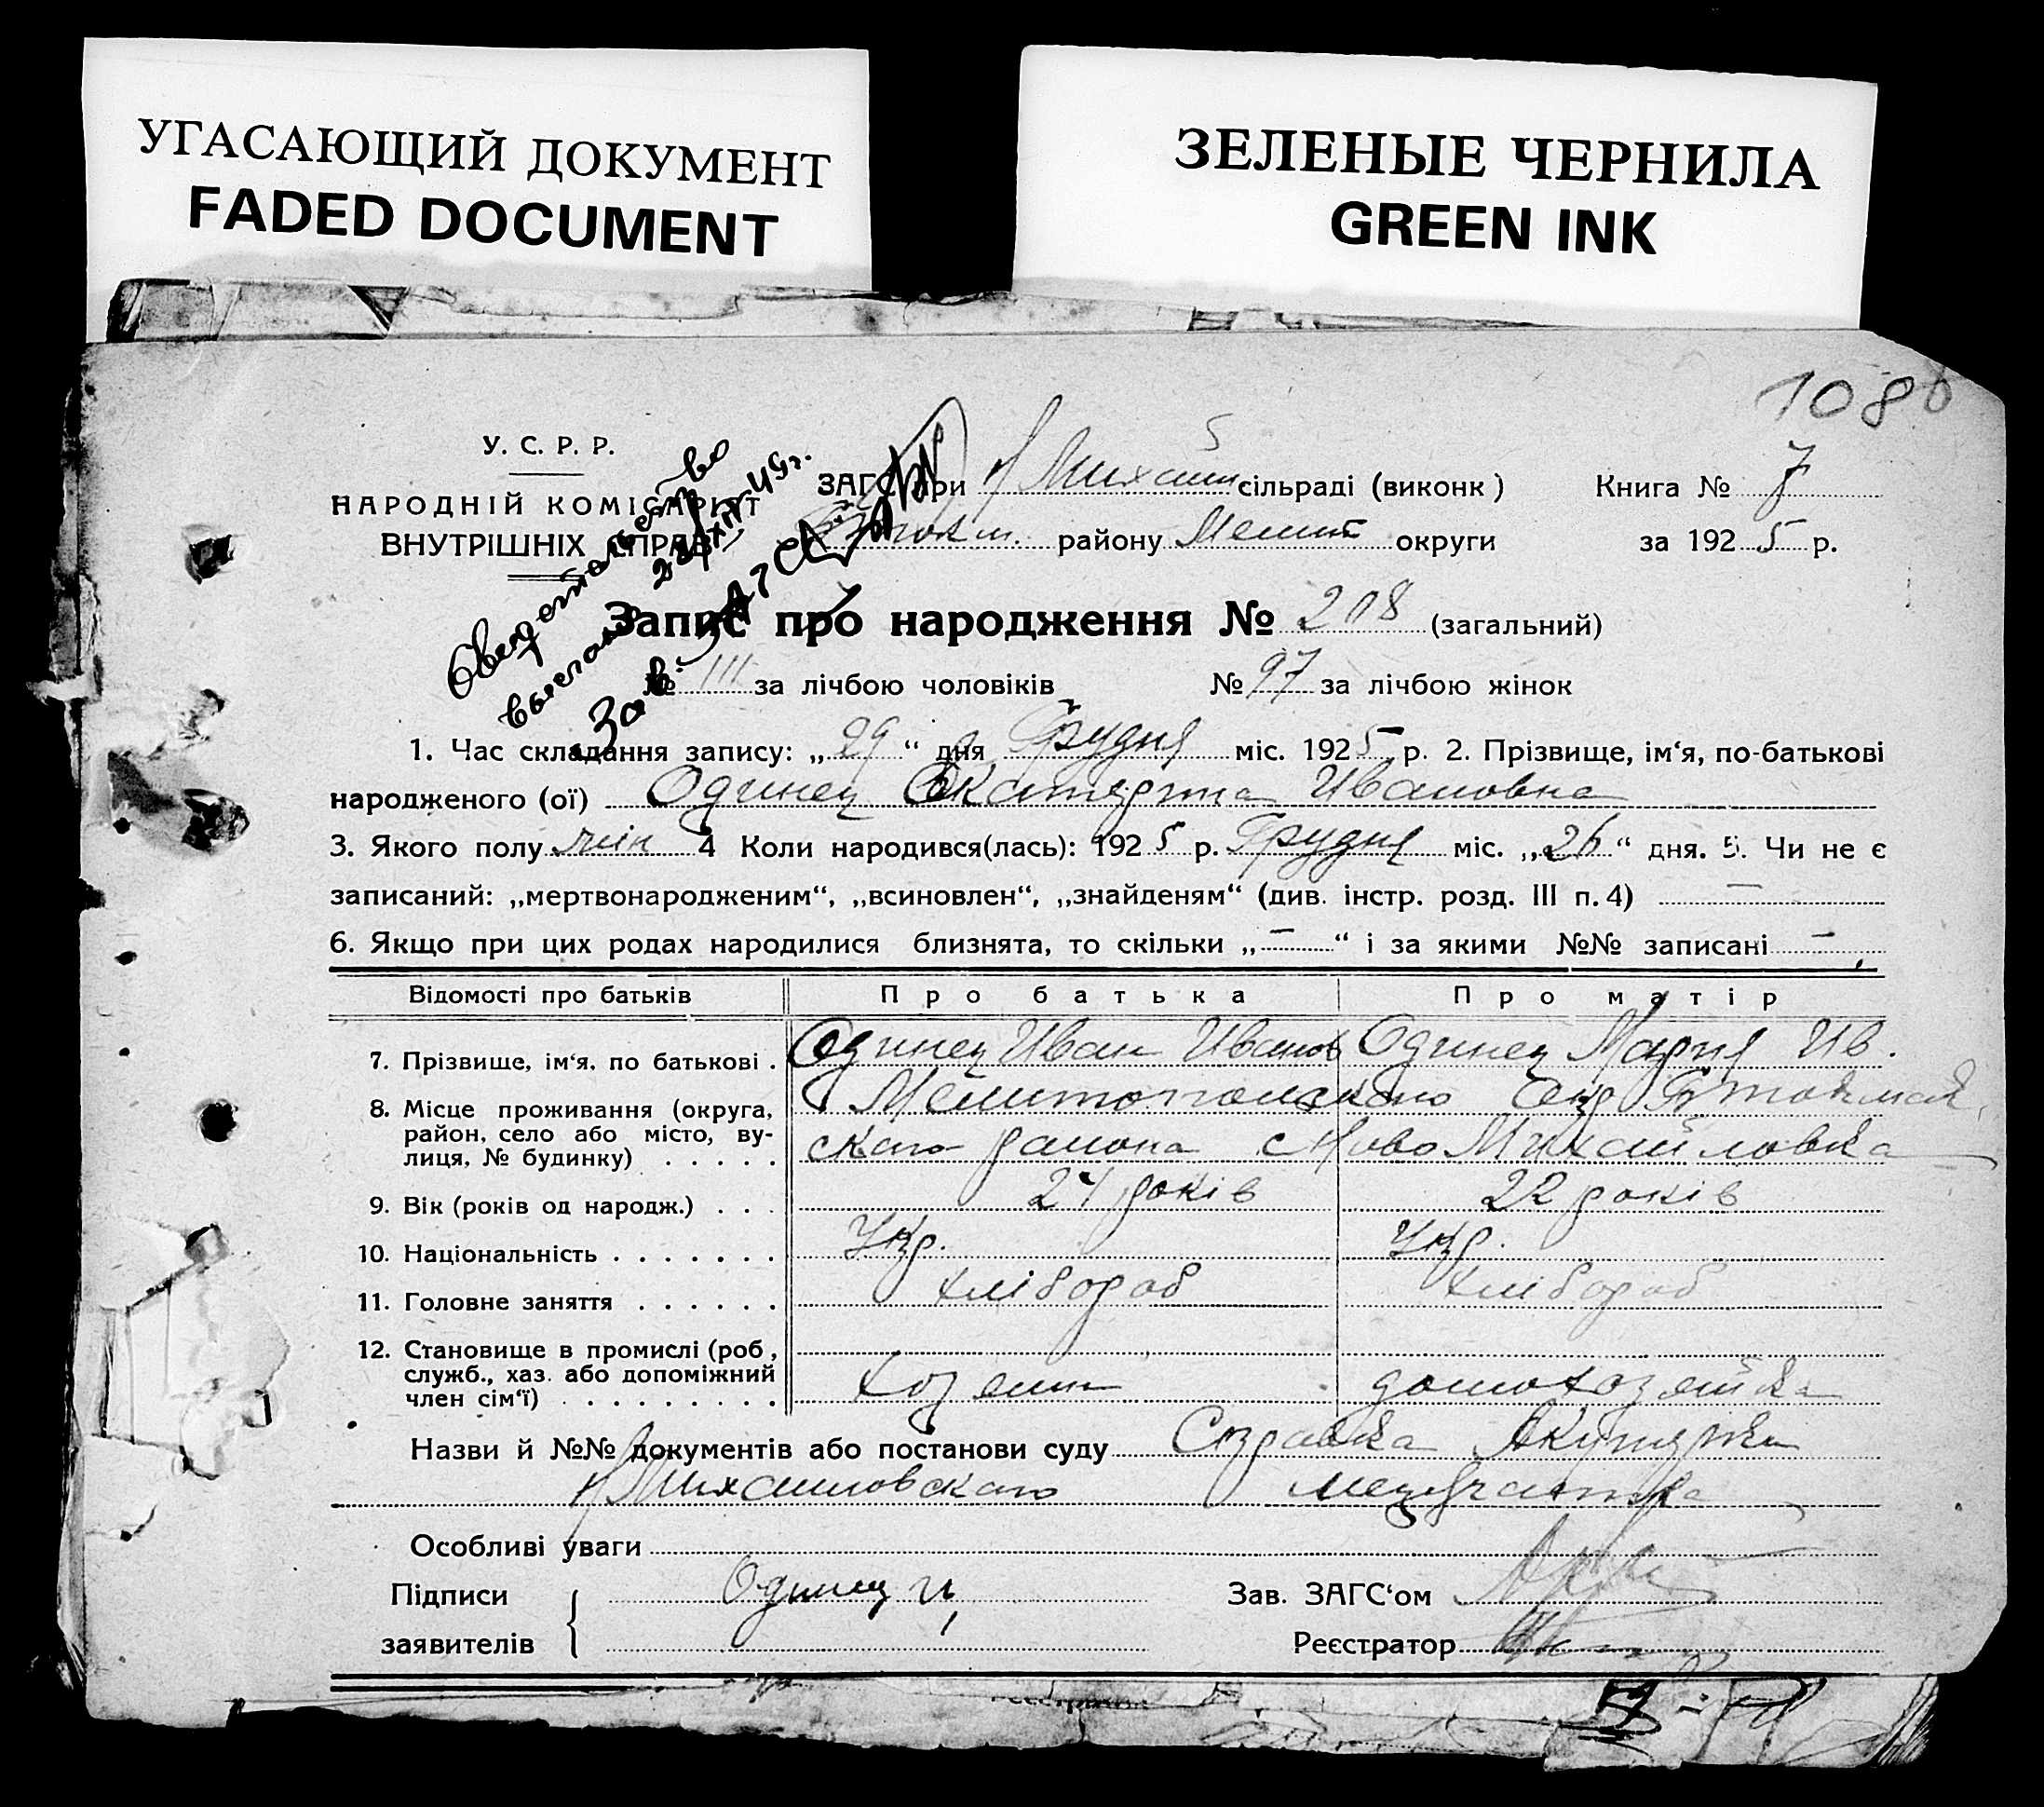 УГАСАЮЩИЙ ДОКУМЕНТ
FADED DOCUMENT
ЗЕЛЕНЫЕ ЧЕРНИЛА
GREEN INK
108
У. С. Р. Р.
НАРОДНІЙ КОМІСАРІЯТ
ВНУТРІШНІХ СПРАВ
ЗАГС при Н Михайл сільраді (виконк)
Б Токм. району Мелит округи
Книга № 7
за 1925 р.
Свидетельство
выслано 24/XII 45г.
Зав. ЗАГС
Запис про народження № 208 (загальний)
№ 111 за лічбою чоловіків № 97 за лічбою жінок
1. Час складання запису: „29“ дня Грудня міс. 1925 р. 2. Прізвище, ім‘я, по-батькові
народженого (ої) Одинец Екатерина Ивановна
3. Якого полу жін 4 Коли народився(лась): 1925 р. Грудня міс. „26“ дня. 5. Чи не є
записаний: „мертвонародженим“, „всиновлен“, „знайденям“ (див. інстр. розд. III п. 4) —
6. Якщо при цих родах народилися близнята, то скільки „—“ і за якими №№ записані —
Відомості про батьків Про батька Про матір
7. Прізвище, ім‘я, по батькові . Одинец Иван Иванов Одинец Мария Ив.
8. Місце проживання (округа, район, село або місто, вулиця, № будинку) . . . . . Мелитопольского окр Б Токмак
ского района с Ново Михайловка
9. Вік (років од народж.) . . . 24 років 22 років
10. Національність . . . . . . . Укр. Укр.
11. Головне заняття . . . . . . хлібороб хлібороб
12. Становище в промислі (роб, служб., хаз. або допоміжний член сім‘ї) . . . . . . . . . хозяин домохозяйка
Назви й №№ документів або постанови суду Справка Акушерки
Н Михайловского медучастка
Особливі уваги
Підписи заявителів Одинец И,
Зав. ЗАГС‘ом
Реєстратор